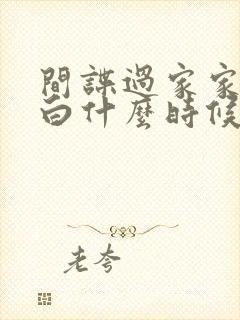 間諜過家家
白什麼時候
老夸